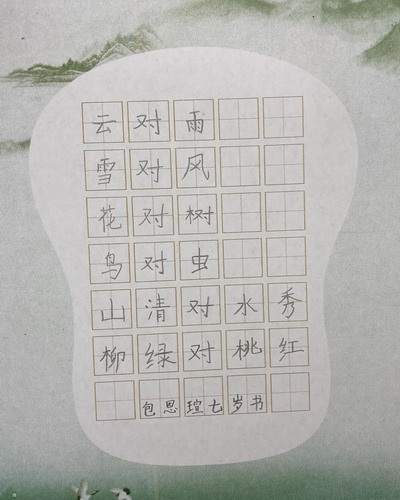 云对雨
雪对风
花对树
鸟对虫
山清对水秀
柳绿对桃红
包思瑄七岁书